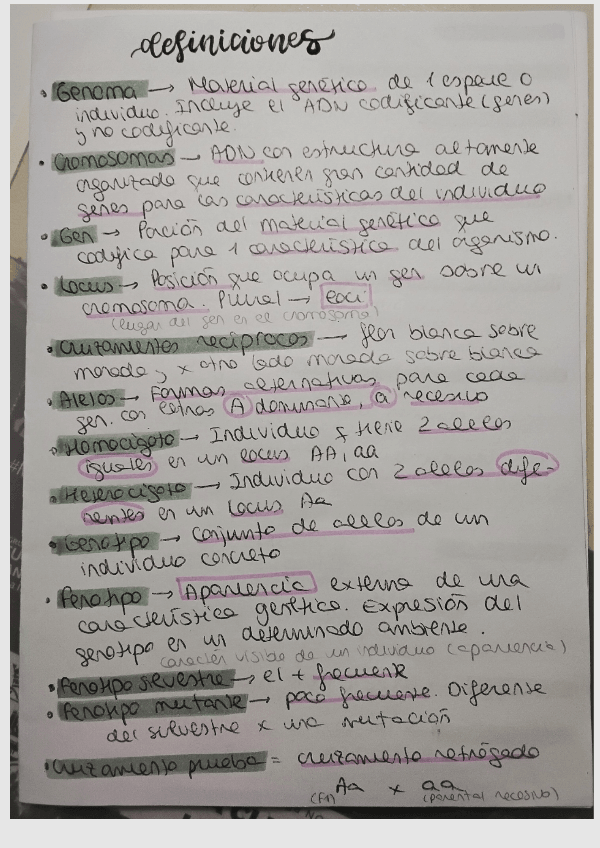 definiciones
• Genoma → Material genético de 1 especie o
individuo. Incluye el ADN codificante (genes)
y no codificante.
• Cromosomas → ADN con estructura altamente
organizado que contienen gran cantidad de
genes para las características del individuo
• Gen → Porción del material genético que
codifica para 1 característica del organismo.
• Locus → Posición que ocupa un gen sobre un
cromosoma. Plural → loci
(lugar del gen en el cromosoma)
• Cruzamientos recíprocos → flor blanca sobre
morada y x otro lado morada sobre blanca
• Alelos → Formas alternativas para cada
gen. con letras A dominante, a recesivo
• Homocigoto → Individuo q tiene 2 alelos
iguales en un locus AA, aa
• Heterocigoto → Individuo con 2 alelos dife-
rentes en un locus Aa
• Genotipo → Conjunto de alelos de un
individuo concreto
• Fenotipo → Apariencia externa de una
característica genética. Expresión del
genotipo en un determinado ambiente.
carácter visible de un individuo (apariencia)
• Fenotipo silvestre → el + frecuente
• Fenotipo mutante → poco frecuente. Diferente
del silvestre x una mutación
• Cruzamiento prueba = cruzamiento retrógado
(F1) Aa x aa (parental recesivo)